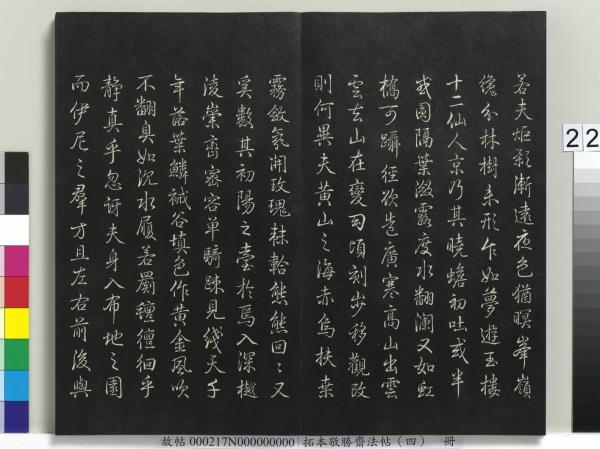 若夫炬影漸遠夜色猶暝峯嶺
纔分林樹未形乍如夢遊玉樓
十二仙人京乃其曉蟾初吐或半
或圓隔葉漵露度水翻瀾又如虹
橋可躡徑欲造廣寒高山出雲
雲在山在變幻頃刻步移觀改
則何異夫黃山之海赤烏扶桒
霧斂氛開玫瑰赫熊熊回又
奚數其初陽之臺於焉入深樾
淩崇密容單騎疎見綫天千
年落葉鱗祴谷填色作黃金風吹
不翻臭如沉水履若罽氊徊乎
靜真乎忽訝夫身入布地之園
而伊尼之羣方且左右前後與
22
故帖 000217N000000000 拓本敬勝齋法帖（四） 冊